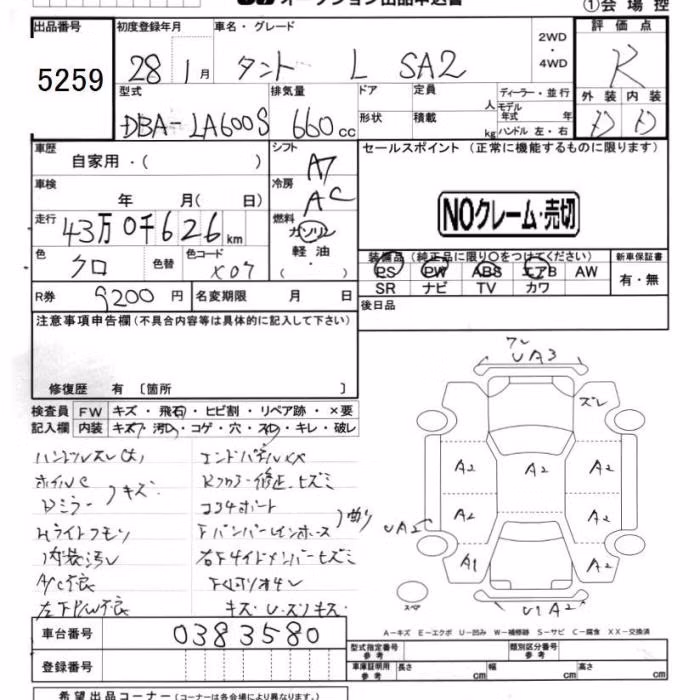 オークション出品申込書
①会場控
出品番号
5259
初度登録年月
28 1月
車名・グレード
タント L SA2
2WD
・
4WD
評価点
R
外装 内装
D D
型式
DBA-LA600S
排気量
660cc
ドア
形状
定員 人
積載 kg
ディーラー・並行
モデル
年式 年
ハンドル 左・右
車歴
自家用・( )
シフト
A7
セールスポイント (正常に機能するものに限ります)
車検
年 月( 日)
冷房
AC
NOクレーム・売切
走行
43万0千626km
燃料
ガソリン
軽油・
( )
色
クロ
色替
色コード
X07
装備品(純正品に限り○をつけてください)
PS PW ABS エアB AW
SR ナビ TV カワ
新車保証書
有・無
R券
9200円
名変期限 月 日
後日品
注意事項申告欄(不具合内容等は具体的に記入して下さい)
修復歴 有〔箇所 〕
検査員 FW キズ・飛石・ヒビ割・リペア跡・×要
記入欄 内装 キズ・汚れ・コゲ・穴・スレ・キレ・破レ
ハンドルスレ(大)
ホイルC
Dミラー キズ
Hライトクモリ
内装汚レ
A/C不良
左FP/W不良
エンドパネルXX
コア4ポート
FバンパーレインホースF
右Fサイドメンバーヒズミ
キズ・U・スリキズ
UA3
ズレ
A2
A2
A2
A2
A2
UA2
A1
A2
スペア
U1A2
A-キズ E-エクボ U-凹み W-補修跡 S-サビ C-腐食 XX-交換済
車台番号
0383580
登録番号
型式指定番号
参考
類別区分番号
参考
車庫証明用
参考
長さ cm 幅 cm 高さ cm
希望出品コーナー(コーナーは各会場により異なります)